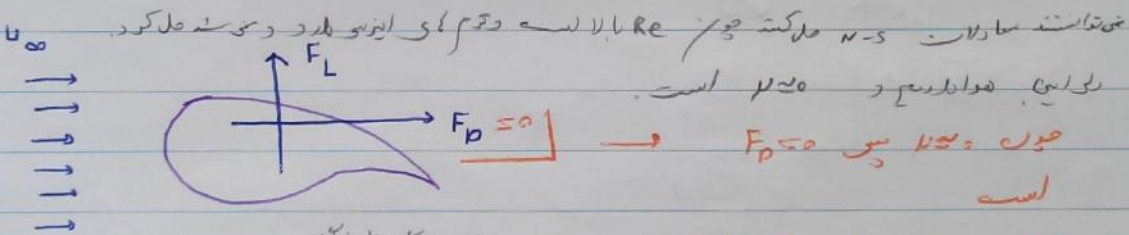 نمی‌توانستند معادلات N-S حل کنند چون Re بالا است و ترم های اینرسی دارد و نمی‌شد حل کرد.
U∞
F_L
برای این هوا داریم و μ≈0 است.
F_D = 0 → چون μ≈0 پس F_D=0
است